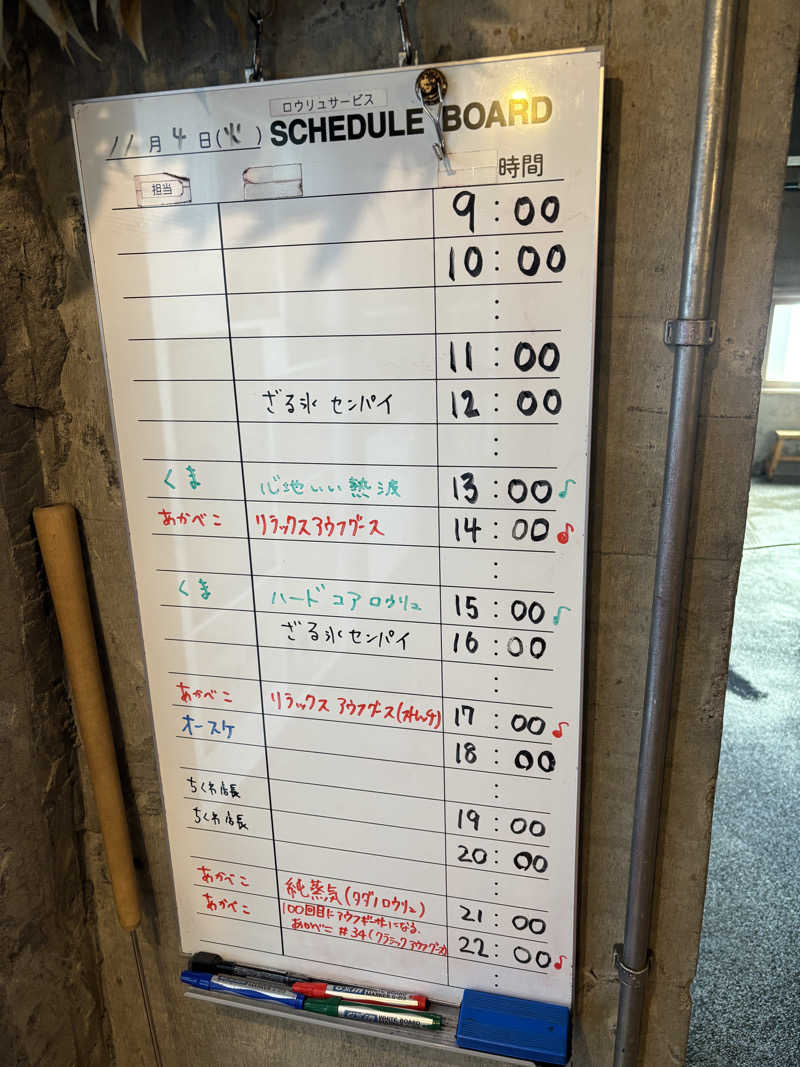 ロウリュサービス
11月4日(火) SCHEDULE BOARD
担当 時間
9:00
10:00
:
11:00
ざる氷 センパイ 12:00
:
くま 心地いい熱波 13:00♪
あかべこ リラックスアウフグース 14:00♪
:
くま ハードコアロウリュ 15:00♪
ざる氷センパイ 16:00
:
あかべこ リラックスアウフグース(オレンヂ) 17:00♪
オースケ 18:00
:
ちくわ店長 19:00
ちくわ店長 20:00
:
あかべこ 純蒸気(タグノロウリュ) 21:00
あかべこ 100回目にアウフギーサーになる、
あかべこ #34(クラシックアウフグース) 22:00♪
:
WHITE BOARD